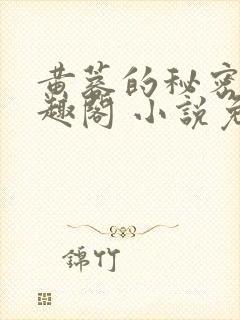 黄蓉的秘密
趣閣 小說免
錦竹